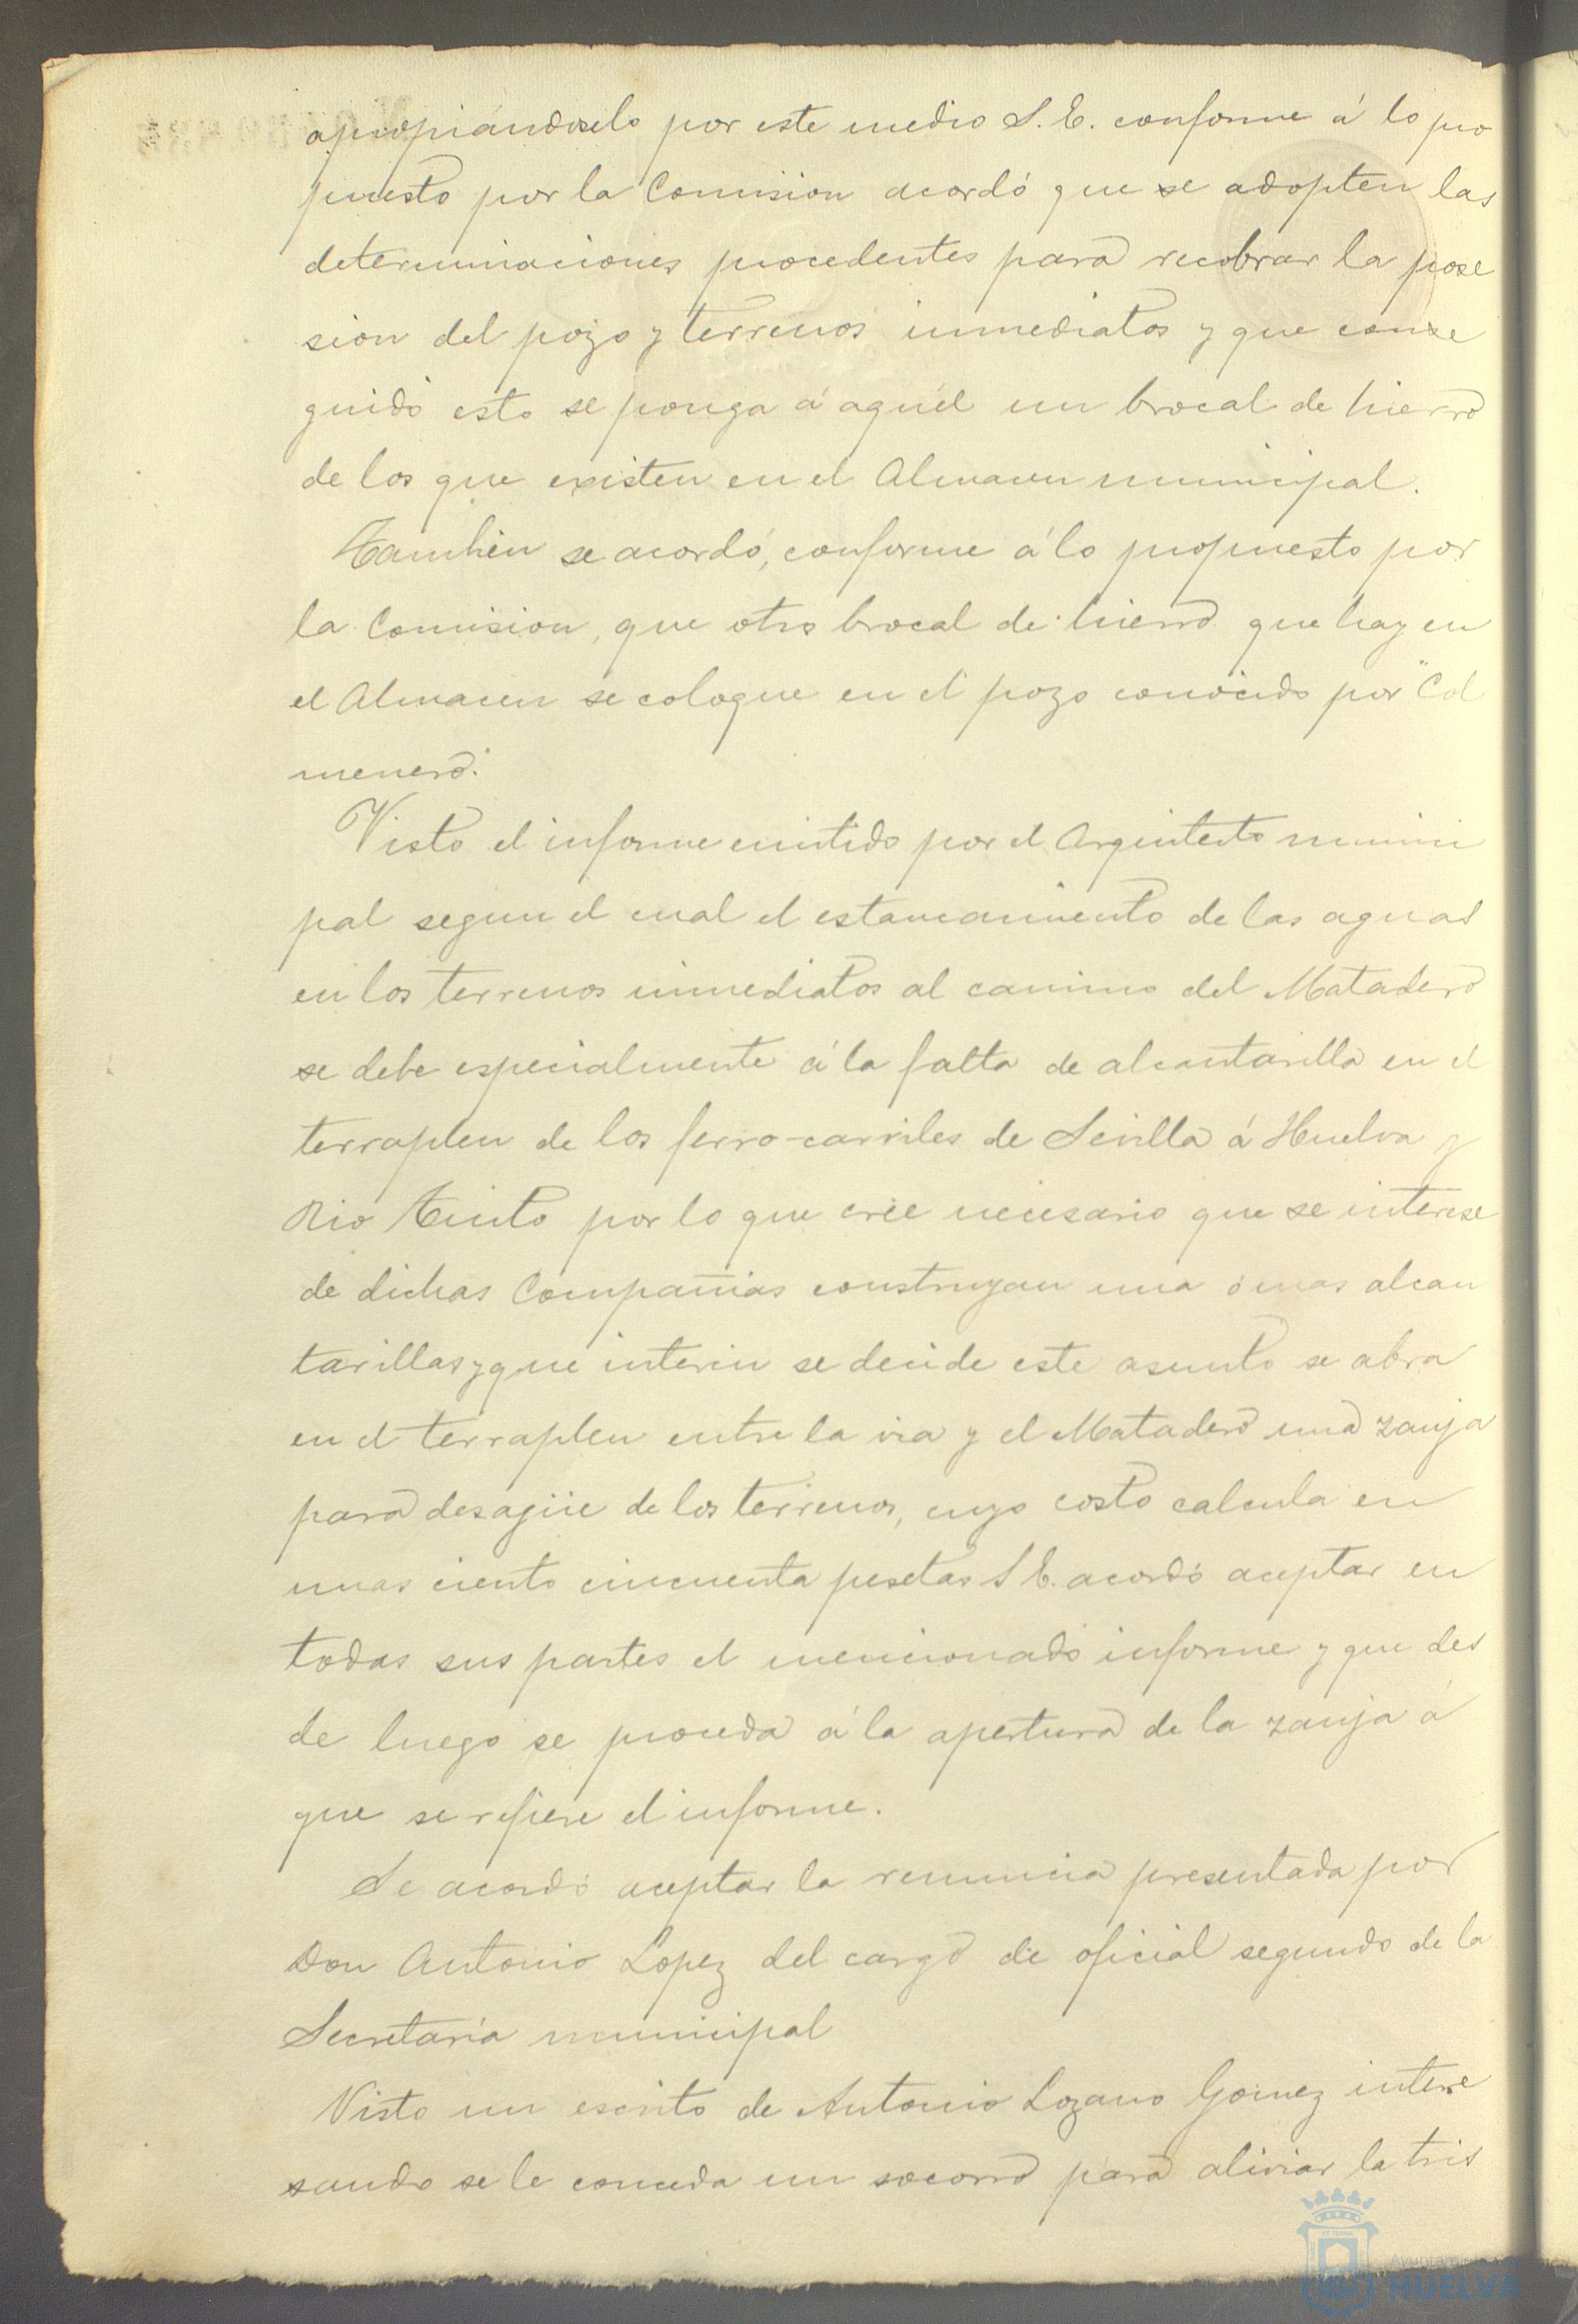 apropiándoselo por este medio S. E. conforme á lo pro
puesto por la Comision acordó que se adopten las
determinaciones procedentes para recobrar la pose
sion del pozo y terrenos inmediatos y que conse
guido esto se ponga á aquél un brocal de hierro
de los que existen en el Almacen municipal.
Tambien se acordó, conforme á lo propuesto por
la Comision, que otro brocal de hierro que hay en
el Almacen se coloque en el pozo conocido por "Col
menero".
Visto el informe emitido por el Arquitecto munici
pal segun el cual el estancamiento de las aguas
en los terrenos inmediatos al camino del Matadero
se debe especialmente á la falta de alcantarilla en el
terraplen de los ferro-carriles de Sevilla á Huelva y
Rio Tinto por lo que cree necesario que se interese
de dichas Compañias construyan una ó mas alcan
tarillas y que interin se decide este asunto se abra
en el terraplen entre la via y el Matadero una zanja
para desagüe de los terrenos, cuyo costo calcula en
unas ciento cincuenta pesetas S E. acordó aceptar en
todas sus partes el mencionado informe y que des
de luego se proceda á la apertura de la zanja á
que se refiere el informe.
Se acordó aceptar la renuncia presentada por
Don Antonio Lopez del cargo de oficial segundo de la
Secretaria municipal
Visto un escrito de Antonio Lozano Gomez intere
sando se le conceda un socorro para aliviar la tris
Ayuntamiento
HUELVA